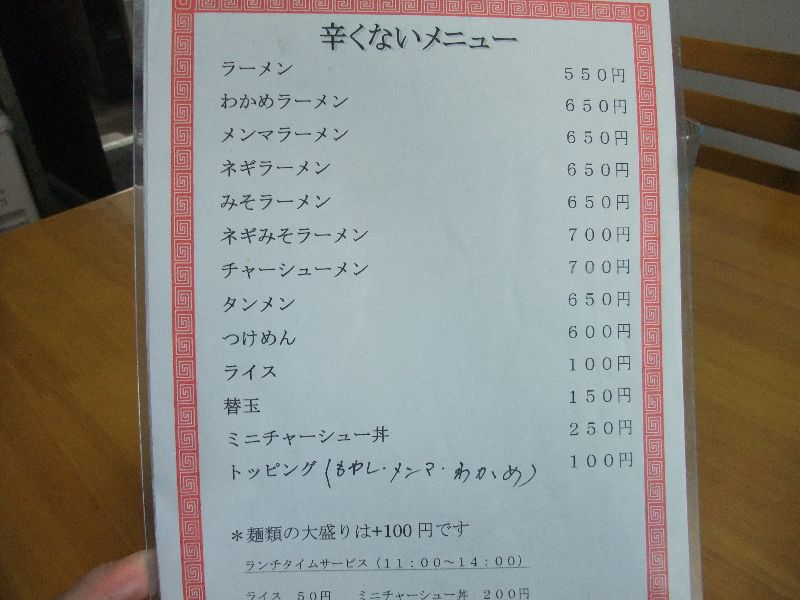 辛くないメニュー
ラーメン ５５０円
わかめラーメン ６５０円
メンマラーメン ６５０円
ネギラーメン ６５０円
みそラーメン ６５０円
ネギみそラーメン ７００円
チャーシューメン ７００円
タンメン ６５０円
つけめん ６００円
ライス １００円
替玉 １５０円
ミニチャーシュー丼 ２５０円
トッピング(もやし・メンマ・わかめ) １００円
＊麺類の大盛りは+100円です
ランチタイムサービス（１１：００～１４：００）
ライス ５０円 ミニチャーシュー丼 ２００円